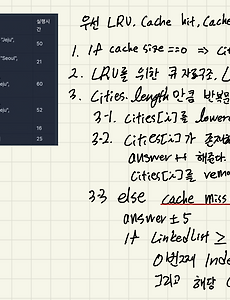 실행시간
"Jeju",
50
"Seoul",
21
eju",
60
eju",
52
16
25
우선 LRU, Cache hit, Cache
1. if cache size == 0 → Cit
2. LRU를 위한 큐 자료구조, L
3. Cities.length 만큼 반복문
3-1. Cities[i]를 lower
3-2. Cities[i]가 존재
answer++ 해준다.
Cities[i]를 remo
3-3 else cache miss
answer ± 5
if LinkedList ≥
0번째 Inde
그리고 해당 C